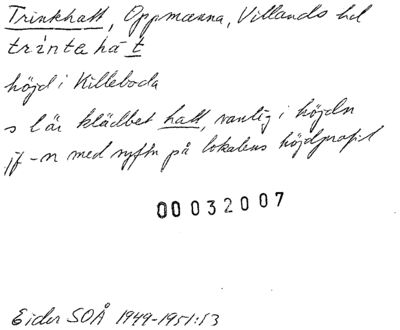 Trinkhatt, Oppmanna, Villands hd
trintahát
höjd i Killeboda
s lär klädbet hatt, vanlig i höjdn
jf -n med syftn på lokalens höjdprofil
00032007
Eider SOÅ 1949-1951:53